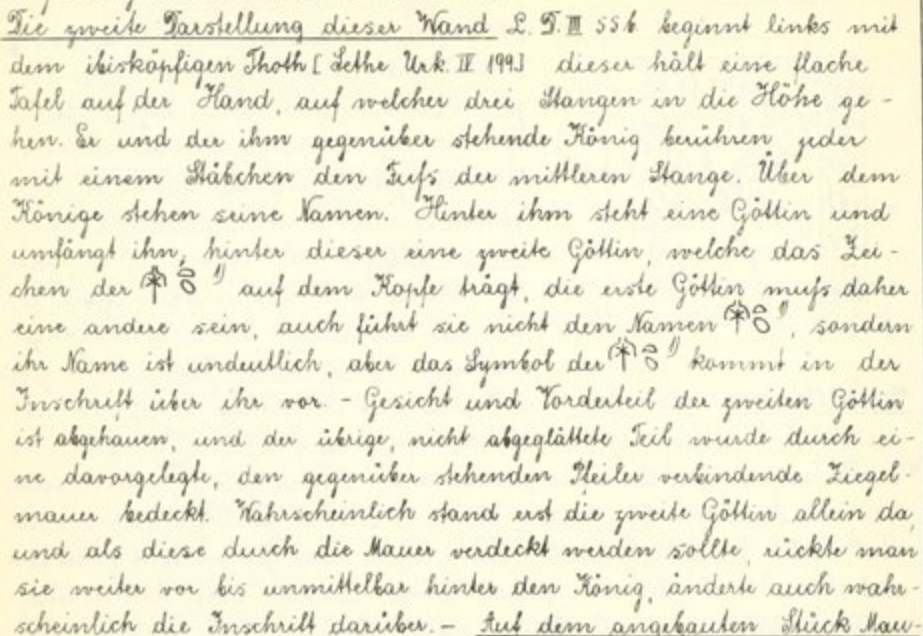 Die zweite Darstellung dieser Wand L. D. III 55b. beginnt links mit
dem ibisköpfigen Thoth [Sethe Urk. IV 199] dieser hält eine flache
Tafel auf der Hand, auf welcher drei Stangen in die Höhe ge-
hen. Er und der ihm gegenüber stehende König berühren jeder
mit einem Stäbchen den Fufs der mittleren Stange. Über dem
Könige stehen seine Namen. Hinter ihm steht eine Göttin und
umfängt ihn, hinter dieser eine zweite Göttin, welche das Zei-
chen der 1) auf dem Kopfe trägt, die erste Göttin mufs daher
eine andere sein, auch führt sie nicht den Namen 1), sondern
ihr Name ist undeutlich, aber das Symbol der 1) kommt in der
Inschrift über ihr vor. - Gesicht und Vorderteil der zweiten Göttin
ist abgehauen, und der übrige, nicht abgeglättete Teil wurde durch ei-
ne davorgelegte, den gegenüber stehenden Pfeiler verbindende Ziegel-
mauer bedeckt. Wahrscheinlich stand erst die zweite Göttin allein da,
und als diese durch die Mauer verdeckt werden sollte, rückte man
sie weiter vor bis unmittelbar hinter den König, änderte auch wahr-
scheinlich die Inschrift darüber. - Auf dem angebauten Stück Mau-